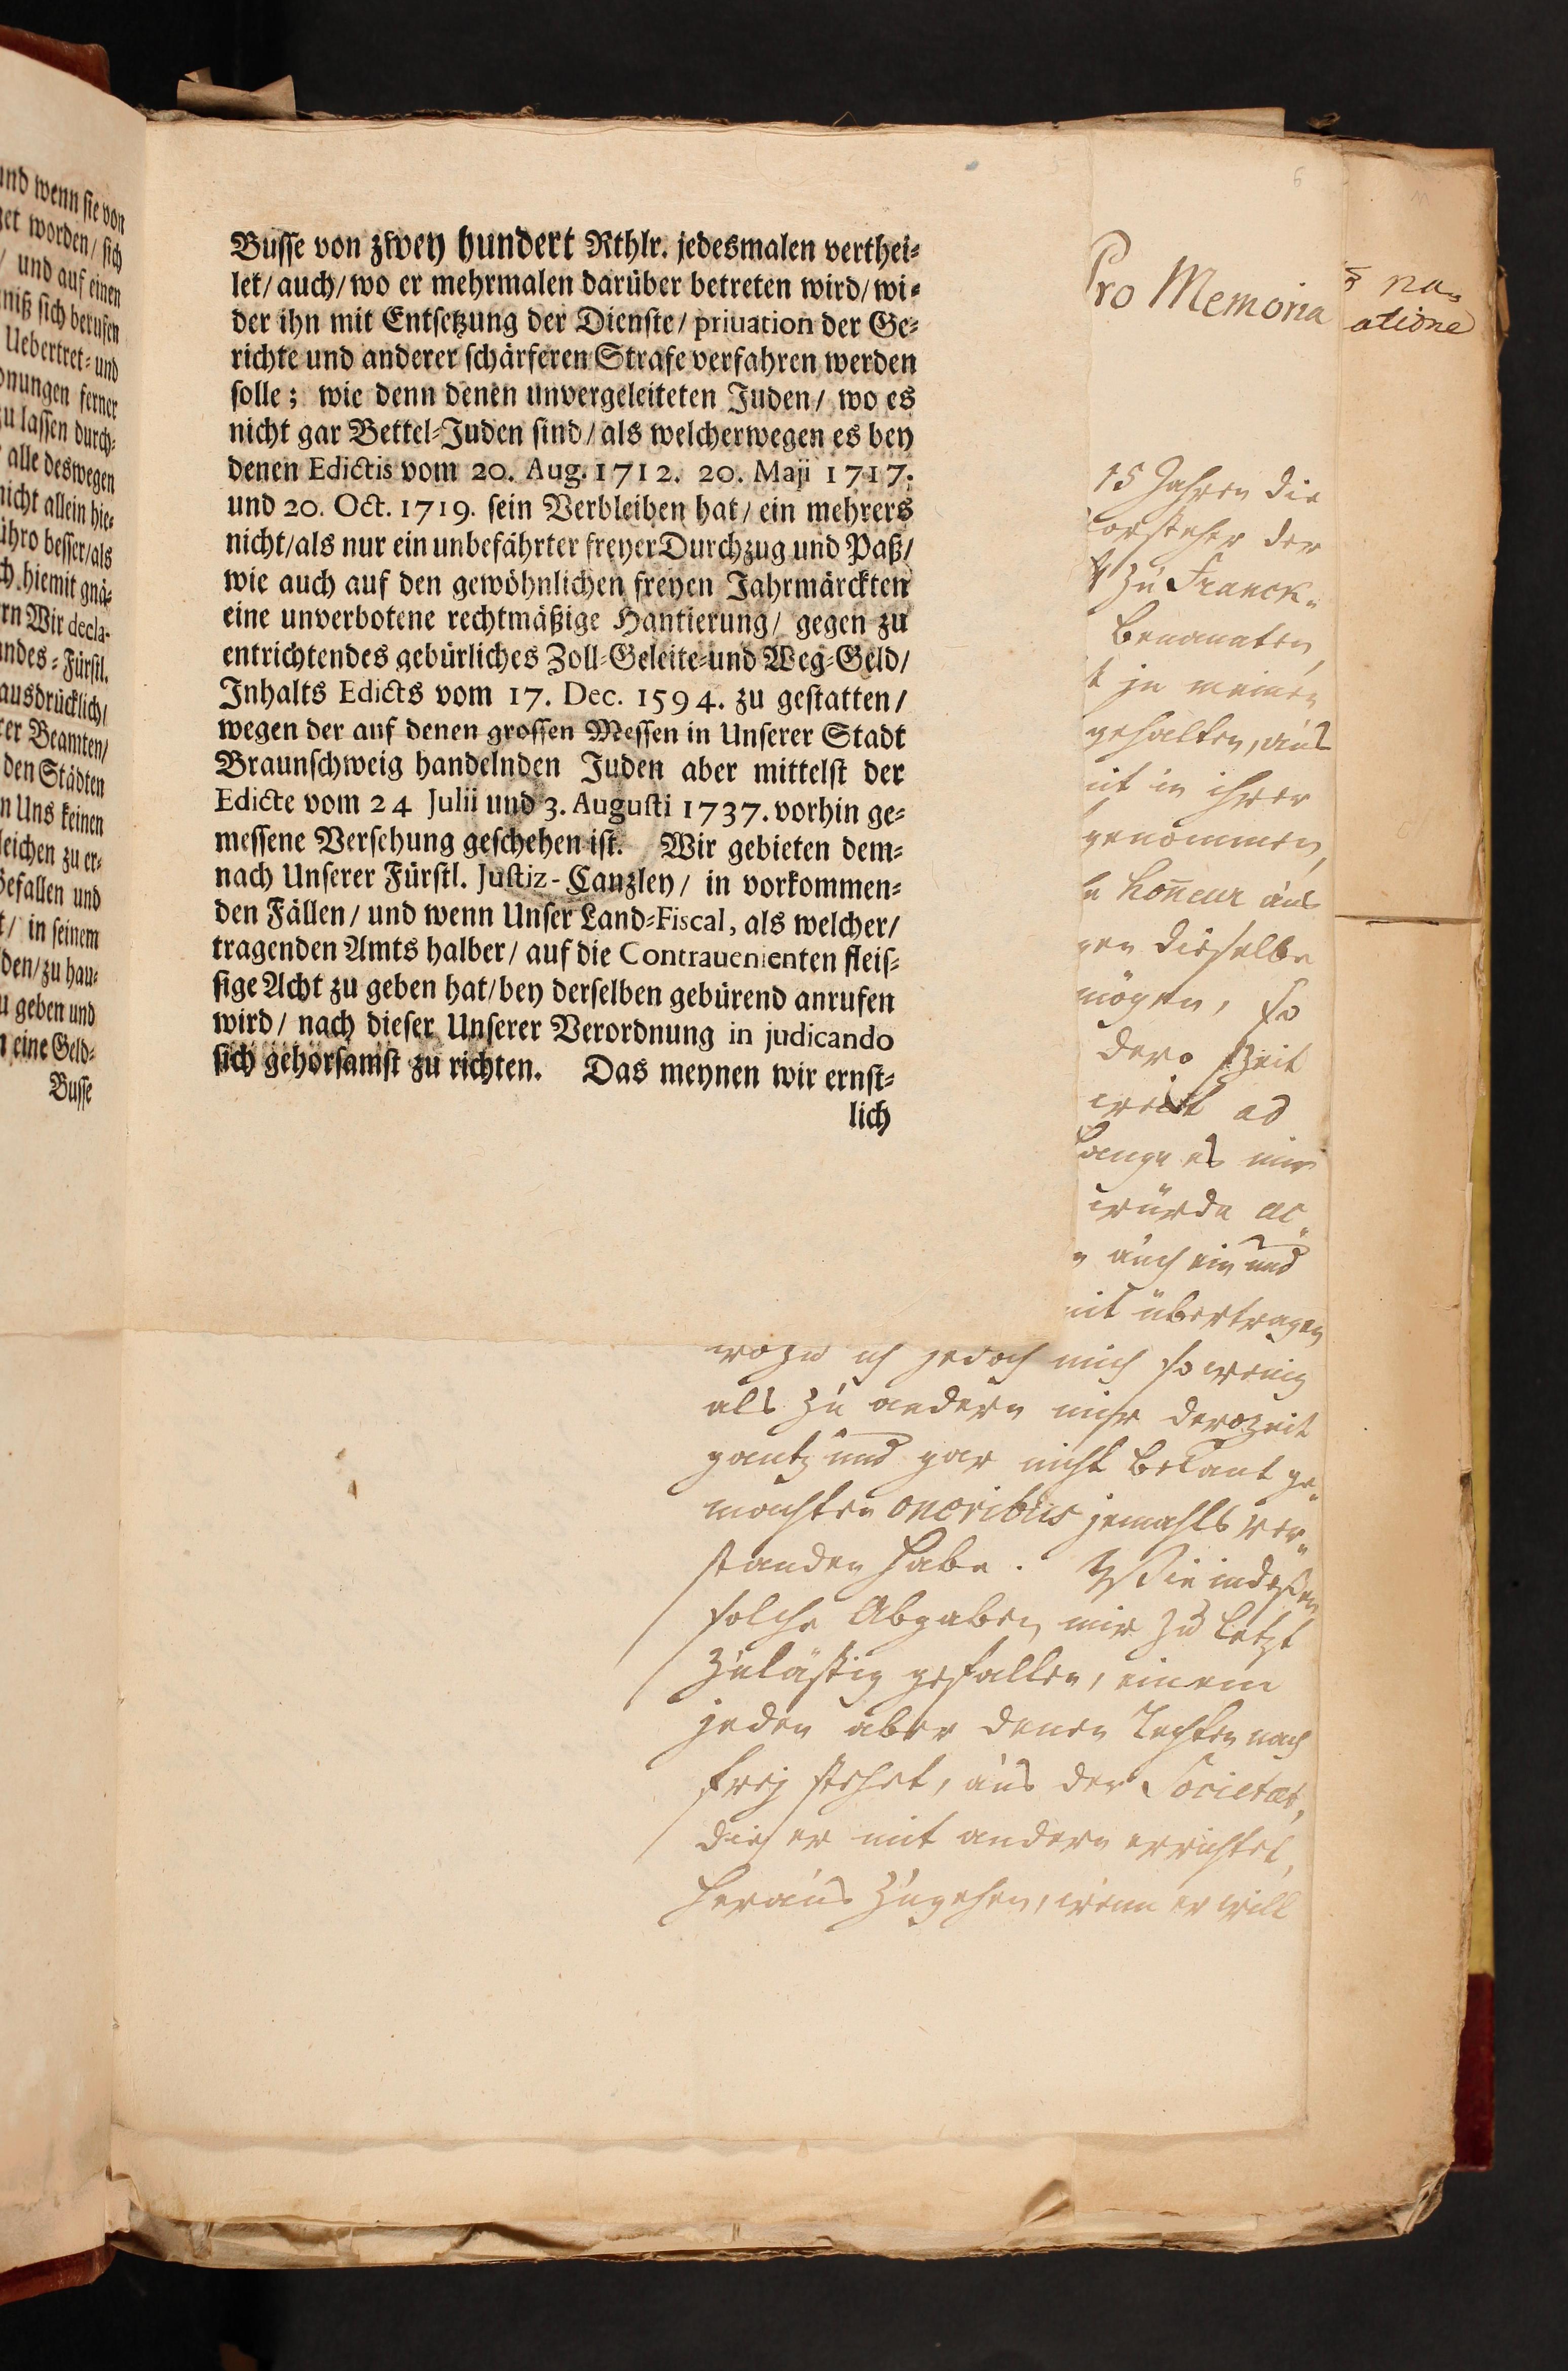 und wenn sie von
get worden/ sich
/ und auf einen
niß sich beruffen
Uebertret- und
nungen ferner
zu lassen durch-
alle deswegen
nicht allein hie-
ühro besser/als
ch hiemit gnä-
rn Wir decla-
andes-Fürstl.
ausdrücklich/
er Beamten/
den Städten
n Uns keinen
leichen zu er-
Gefallen und
t/ in seinem
den/zu hau-
u geben und
n eine Geld-
Busse
Busse von zwey hundert Rthlr. jedesmalen verthei-
let/ auch/ wo er mehrmalen darüber betreten wird/ wi-
der ihn mit Entsetzung der Dienste/ priuation der Ge-
richte und anderer schärferen Strafe verfahren werden
solle; wie denn denen unvergeleiteten Juden/ wo es
nicht gar Bettel-Juden sind/ als welcherwegen es bey
denen Edictis vom 20. Aug. 1712. 20. Maji 1717.
und 20. Oct. 1719. sein Verbleiben hat/ ein mehrers
nicht/als nur ein unbefährter freyer Durchzug und Paß/
wie auch auf den gewöhnlichen freyen Jahrmärckten
eine unverbotene rechtmäßige Hantierung/ gegen zu
entrichtendes gebürliches Zoll-Geleite-und Weg-Geld/
Inhalts Edicts vom 17. Dec. 1594. zu gestatten/
wegen der auf denen grossen Messen in Unserer Stadt
Braunschweig handelnden Juden aber mittelst der
Edicte vom 24 Julii und 3. Augusti 1737. vorhin ge-
messene Versehung geschehen ist. Wir gebieten dem-
nach Unserer Fürstl. Justiz-Canzley/ in vorkommen-
den Fällen/ und wenn Unser Land-Fiscal, als welcher/
tragenden Amts halber/ auf die Contrauenienten fleis-
sige Acht zu geben hat/ bey derselben gebürend anrufen
wird/ nach dieser Unserer Verordnung in judicando
sich gehorsamst zu richten. Das meynen wir ernst-
lich
6
11
Pro Memoria
atione
15 Jahren die
orsteher der
zu Franck-
Benanaten,
t in meinen
gehalten, aus
nit in ihrer
genommen,
honeur aus
gen dieselbe
mögen, so
dero Zeit
ad
lange es mir
würde ac-
auch ein und
nit übertragen
wozu ich jedoch mich so wenig
als zu andern mihr derozeit
gantz und gar nicht bekant ge-
machten oneribus jemahls ver-
standen habe. Wie indeßen
solche Abgaben mir zu letzt
zulästig gefallen, einem
jeden aber denen Rechten nach
frey stehet, aus der Societæt,
die er mit andern errichtet,
heraus zugehen, wenn er will